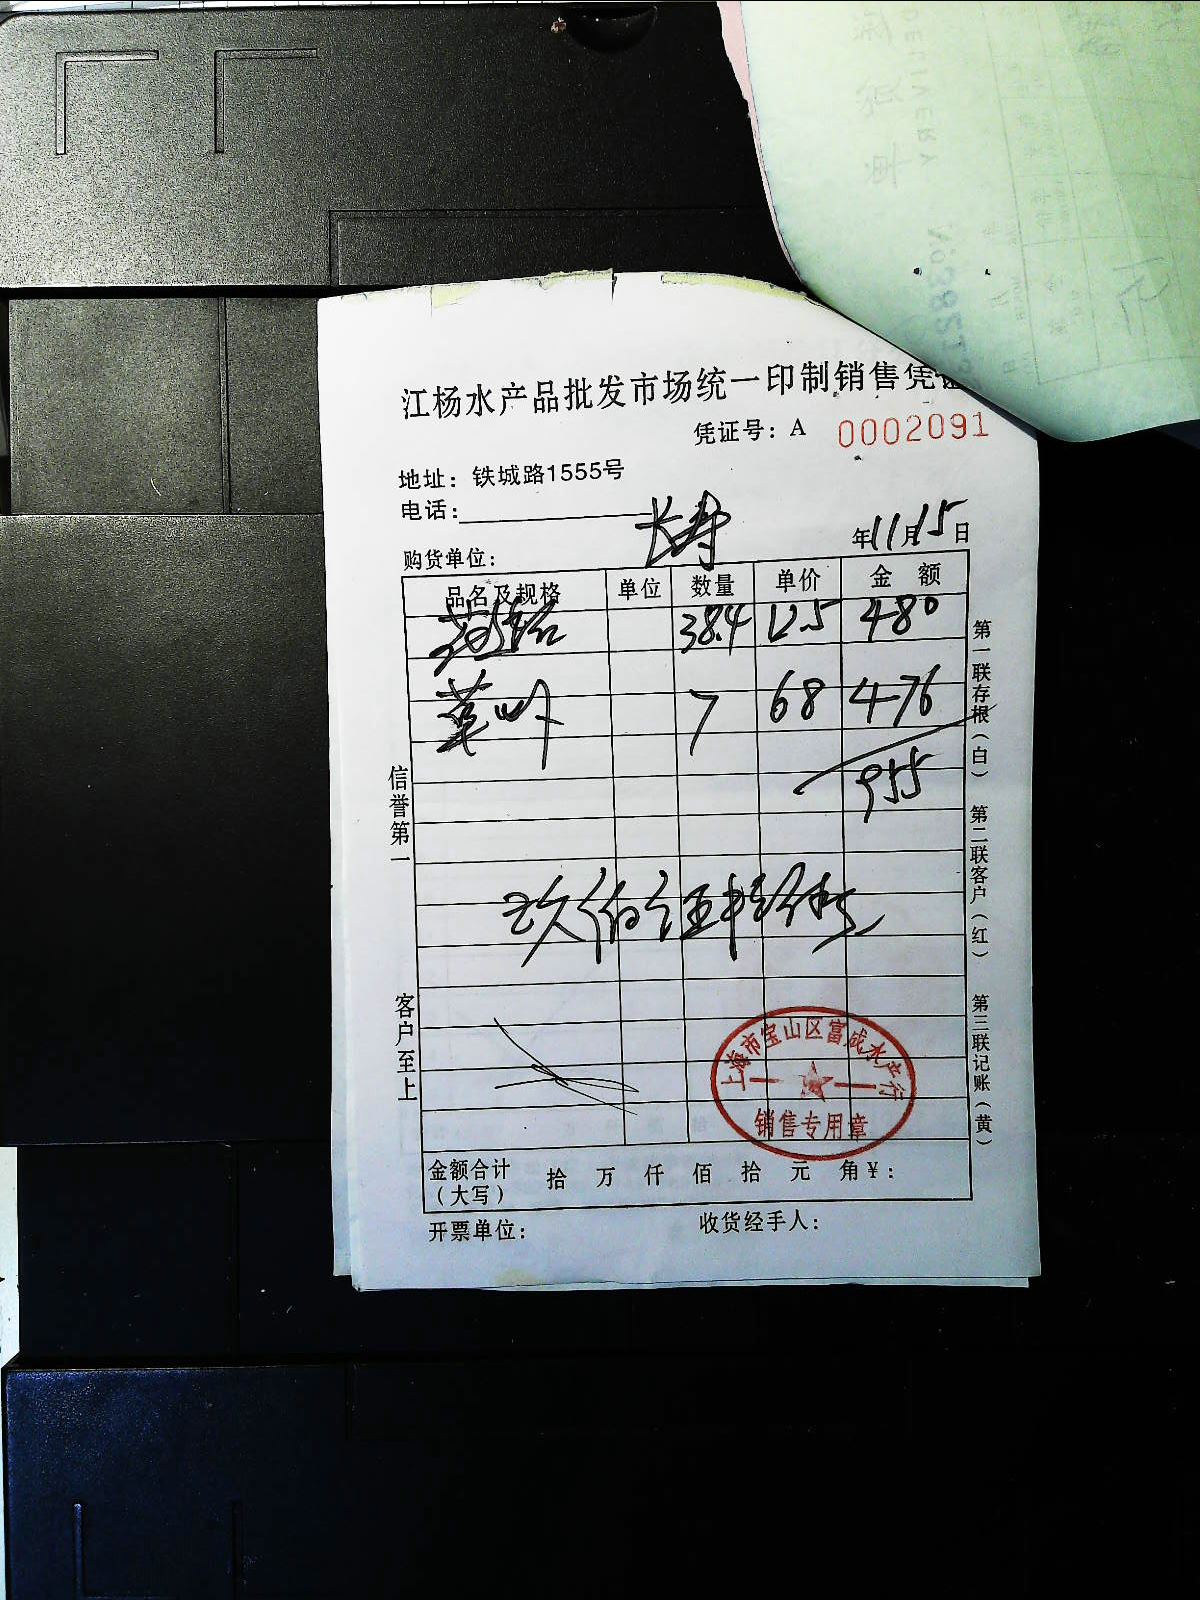 江杨水产品批发市场统一印制销售凭证
凭证号：A 0002091
地址：铁城路1555号
电话：
购货单位： 长寿 年11月15日
品名及规格 单位 数量 单价 金额
38.4 12.5 480
7 68 476
955
玖佰伍拾
金额合计 拾 万 仟 佰 拾 元 角 ¥：
（大写）
开票单位： 收货经手人：
信誉第一
客户至上
第一联存根（白）
第二联客户（红）
第三联记账（黄）
上海市宝山区富成水产行
销售专用章